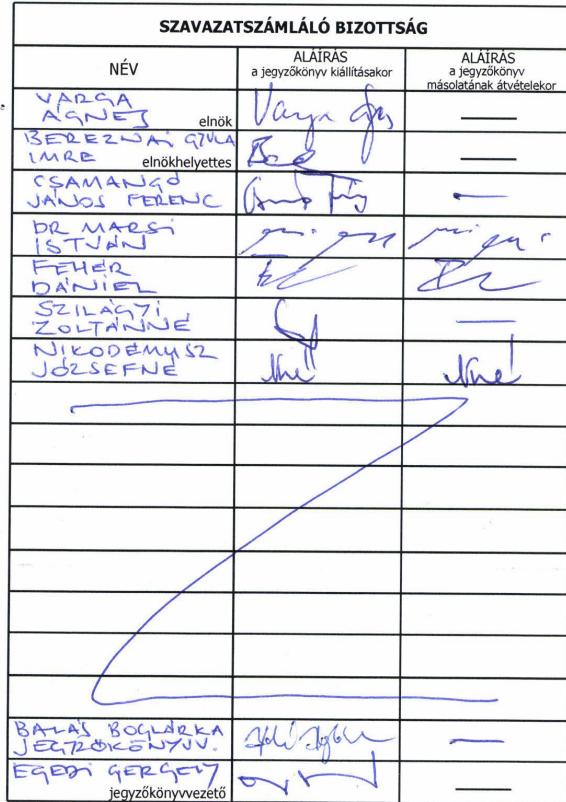 SZAVAZATSZÁMLÁLÓ BIZOTTSÁG
NÉV
ALÁÍRÁS
a jegyzőkönyv kiállításakor
ALÁÍRÁS
a jegyzőkönyv
másolatának átvételekor
VARGA
ÁGNES elnök
BEREZNAI GYULA
IMRE elnökhelyettes
CSAMANGÓ
JÁNOS FERENC
DR MARSI
ISTVÁN
FEHÉR
DÁNIEL
SZILÁGYI
ZOLTÁNNÉ
NIKODÉMUSZ
JÓZSEFNÉ
BALÁS BOGLÁRKA
JEGYZŐKÖNYVV.
EGEDI GERGELY
jegyzőkönyvvezető